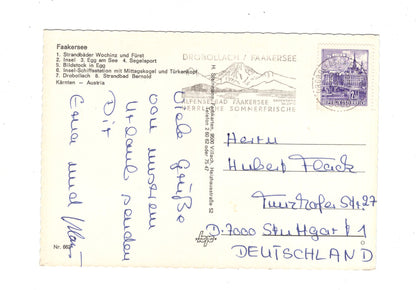 Faakersee
1. Strandbäder Wochinz und Fürst
2. Insel 3. Egg am See 4. Segelsport
5. Bildstock in Egg
6. Insel-Schiffsstation mit Mittagskogel und Türkenkopf
7. Drobollach 8. Strandbad Bernold
Kärnten - Austria
Viele Grüße
von unserem
Urlaub senden
Dir
Erna und
Nr. 66
9500 Villach,
DROBOLLACH / FAAKERSEE
ALPENSEEBAD FAAKERSEE
HERRLICHE SOMMERFRISCHE
REPUBLIK ÖSTERREICH
Herrn
Hubert Flack
Str. 27
D-7000 Stuttgart 1
DEUTSCHLAND